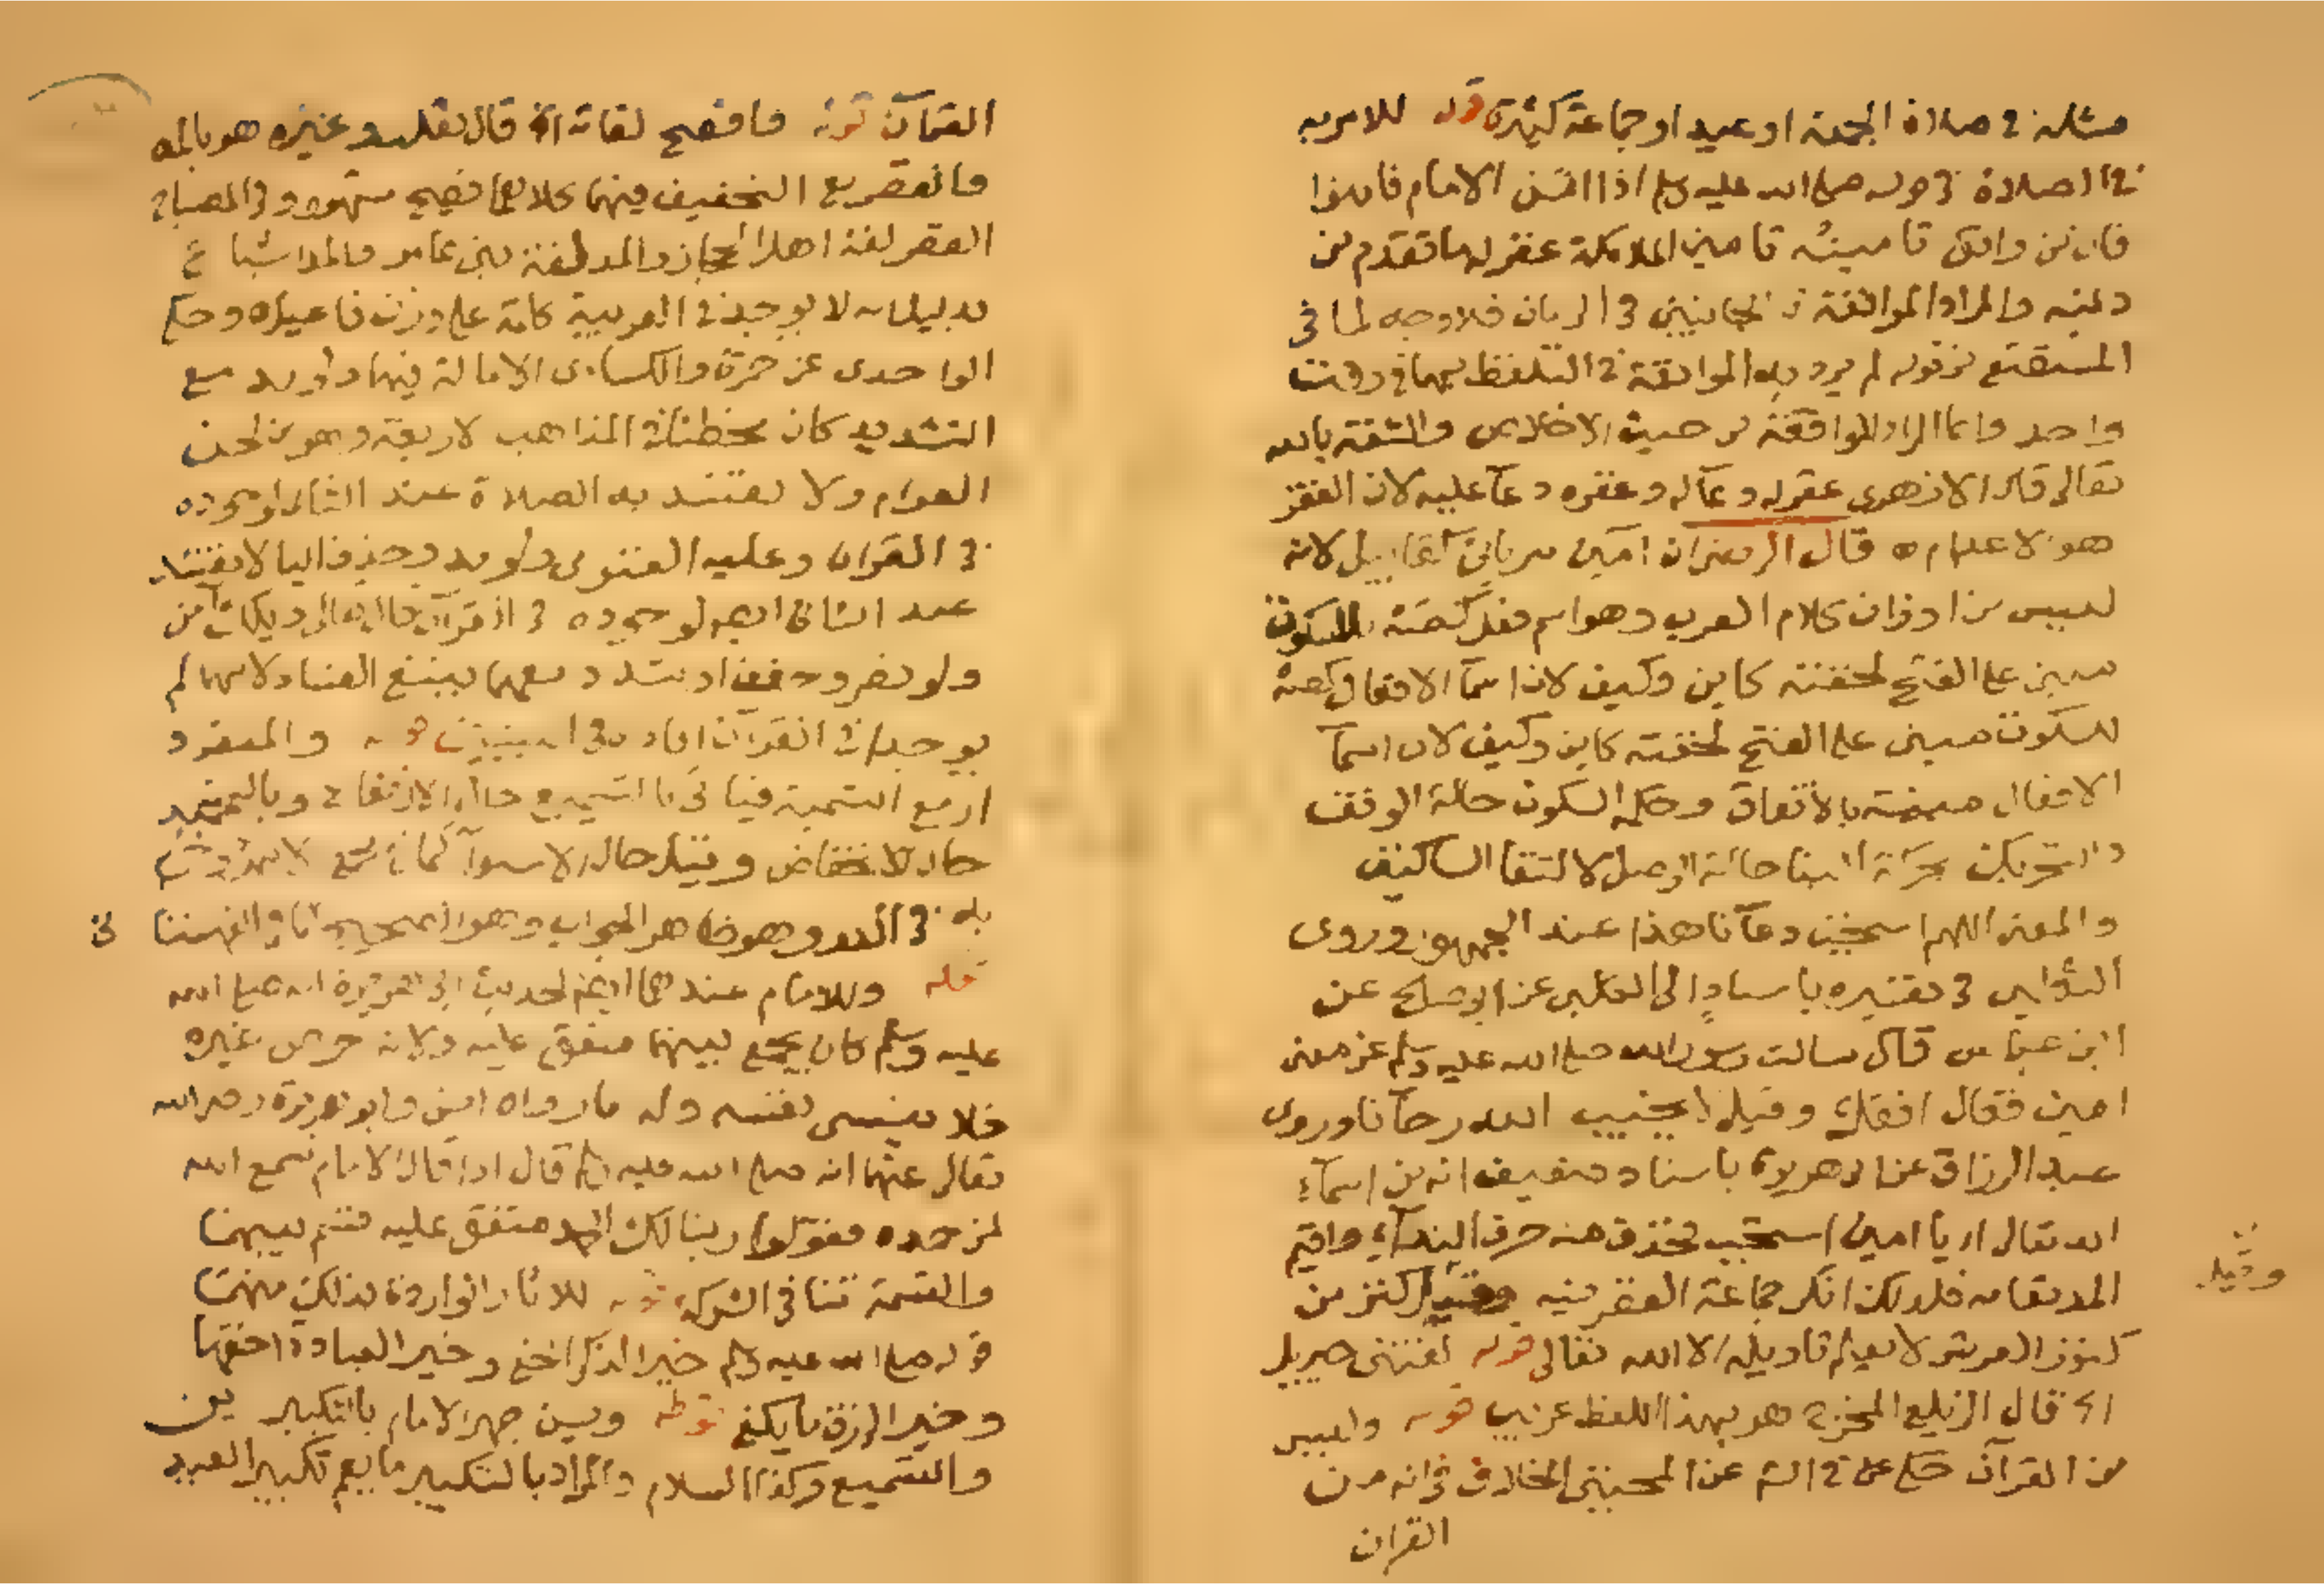 مثله في صلاة الجمعة او عيد او جماعة كثيرة قوله للامر به
في الصلاة في قوله صلى الله عليه وسلم اذا امن الامام فامنوا
فان من وافق تامينه تامين الملائكة غفر له ما تقدم من
ذنبه والمراد الموافقة في الزمان فلا وجه لما في
من قوله لم يرد به الموافقة في التلفظ بهما في وقت
واحد وانما المراد الموافقة من حيث الاخلاص والثقة بالله
تعالى قال الازهرى عقر له دعآ له وعقره دعآ عليه لان العقر
هو قال امين سريانى كقابيل لانه
ليس من اوزان كلام العرب وهو اسم فعل كصه للسكوت
مبنى على الفتح لخفته كاين وكيف لان اسمآ الافعال كصه
للسكوت مبنى على الفتح لخفته كاين وكيف لان اسمآ
الافعال مبنية بالاتفاق وحكمه السكون حالة الوقف
والتحريك بحركة البنا حالة الوصل لالتقا الساكنين
والمعنى اللهم استجب دعآنا هذا عند الجمهور وروى
في تفسيره باسناده الى الكلبى عن ابو صالح عن
ابن عباس قال سالت رسول الله صلى الله عليه وسلم عن معنى
امين فقال افعل وقيل لا يخيب الله رجآنا وروى
عبد الرزاق عن ابى هريرة باسناد ضعيف انه من اسمآء
الله تعالى اى يا امين استجب فحذف منه حرف الندآء واقيم
المد مقامه فلذلك انكر جماعة القصر فيه وقيل كنز من
كنوز العرش لا يعلم تاويله الا الله تعالى قوله لقننى جبريل
الخ قال الزيلعى المخرج هو بهذا اللفظ غريب قوله وليس
من القرآن حكى في عن المجتبى الخلاف في انه من
القران
وقيل
القرآن قوله وافصح لغاته الخ قال ثعلب وغيره هو بالمد
والقصر مع التخفيف فيهما كلاهما فصيح مشهور وفي المصباح
القصر لغة اهل الحجاز والمد لغة بنى عامر والمد اشباع
بدليل انه لا يوجد في العربية كلمة على وزن فاعيل وحكى
الواحدى عن حمزة والكسائى الامالة فيها ولو مد مع
التشديد كان مخطئا في المذاهب الاربعة وهو من لحن
العوام ولا تفسد به الصلاة عند الثانى لوجوده
في القران وعليه الفتوى ولو مد وحذف اليا لا تفسد
عند الثانى لوجوده في
ولو قصر وحذف او شدد معهما ينبغى الفساد لانهما لم
يوجدا في القرآن قوله والمنفرد
حال الارتفاع وبالتحميد
حال الانخفاض وقيل حال الاستوآ كما في
به في وهو ظاهر الجواب وهو الصحيح في
قوله وللامام عندهما لحديث ابى هريرة انه صلى الله
عليه وسلم كان يجمع بينهما متفق عليه ولانه حرض غيره
فلا ينسى نفسه وله ما رواه انس وابو هريرة رضى الله
تعالى عنهما انه صلى الله عليه وسلم قال اذا قال الامام سمع الله
لمن حمده فقولوا ربنا لك الحمد متفق عليه قسم بينهما
والقسمة تنافى الشركة قوله للاثار الواردة بذلك منها
قوله صلى الله عليه وسلم خير الذكر الخفى وخير العبادة اخفها
وخير الرزق ما يكفى قوله ويسن جهر الامام بالتكبير
والتسميع وكذا السلام والمراد بالتكبير ما يعم تكبير العيد